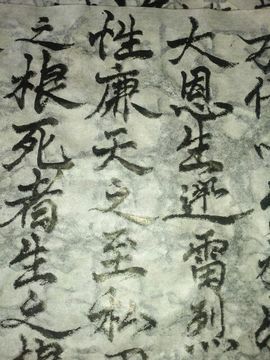 大恩生迅雷烈
性廉天之至私
之根死者生之根